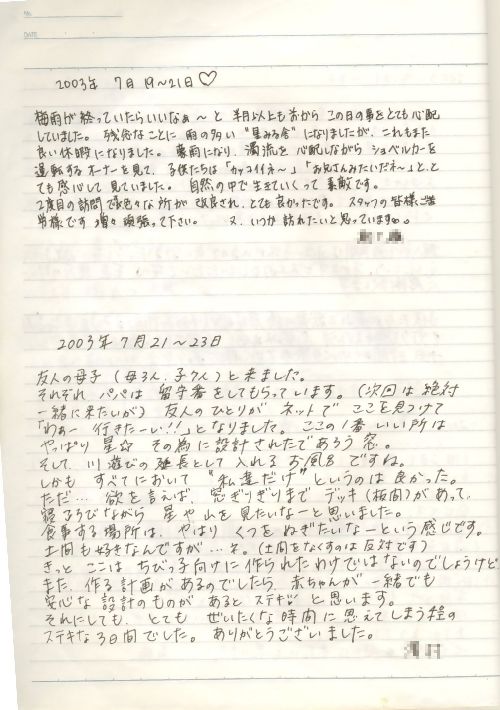 No.
DATE
2003年 7月 19〜21日♡
梅雨が終っていたらいいなぁ〜と 半月以上も前から この日の事をとても心配
していました。 残念なことに 雨の多い "星みる会" になりましたが、これもまた
良い休暇になりました。 豪雨になり、濁流を心配しながら ショベルカーを
運転するオーナーを見て、子供たちは「カッコイイネ〜」「お兄さんみたいだネ〜」と、と
ても感心して見ていました。 自然の中で生きていくって素敵です。
2度目の訪問で色々な所が改良され、とても良かったです。 スタッフの皆様ご苦
労様です 増々頑張って下さい。 又、いつか訪れたいと思っています。
2003年 7月21〜23日
友人の母子(母3人、子7人)と来ました。
それぞれ パパは 留守番をしてもらっています。(次回は絶対
一緒に来たいが) 友人のひとりが ネットで ここを見つけて
「わぁー 行きたーい!!」となりました。 ここの1番いい所は
やっぱり 星☆ その為に設計されたであろう 窓。
そして、川遊びの延長として入れる お風呂 ですね。
しかも すべてにおいて "私達だけ" というのは 良かった。
ただ… 欲を言えば、窓ぎりぎりまで デッキ(板間)があって、
寝ころびながら 星や山を見たいなーと思いました。
食事する場所は、やはり くつをぬぎたいなーという感じです。
土間も好きなんですが…ネ。(土間をなくすのは反対です)
きっと ここは ちびっ子向けに作られたわけではないのでしょうけど
また、作る計画があるのでしたら、赤ちゃんが一緒でも
安心な設計のものが あると ステキ と思います。
それにしても、とても ぜいたくな時間に思えてしまう程の
ステキな3日間でした。 ありがとうございました。